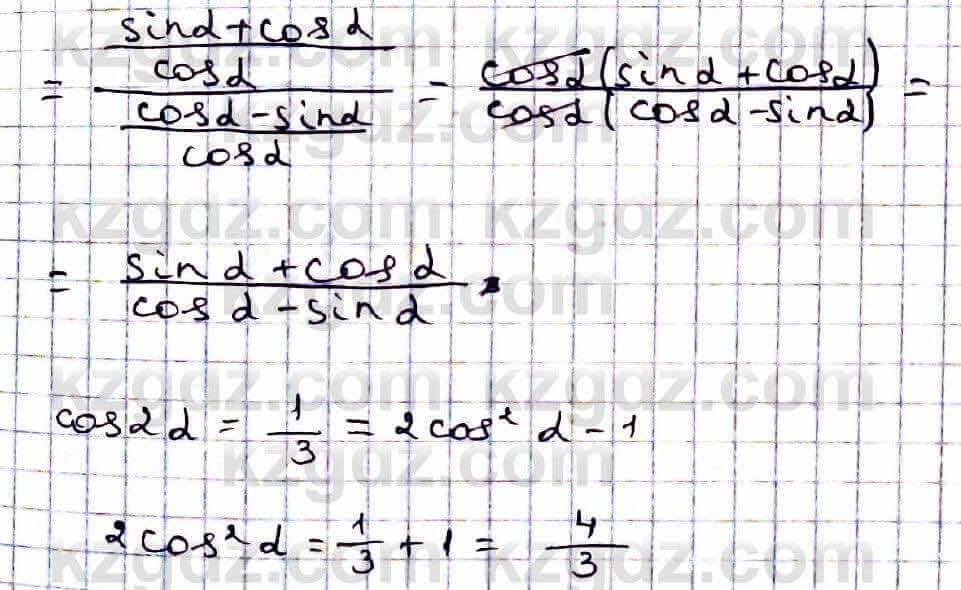 = \frac{\frac{sinα+cosα}{cosα}}{\frac{cosα-sinα}{cosα}} = \frac{cosα(sinα+cosα)}{cosα(cosα-sinα)} =
= \frac{sinα+cosα}{cosα-sinα}.
cos2α = \frac{1}{3} = 2cos²α-1
2cos²α = \frac{1}{3}+1 = \frac{4}{3}
kzgdz.com